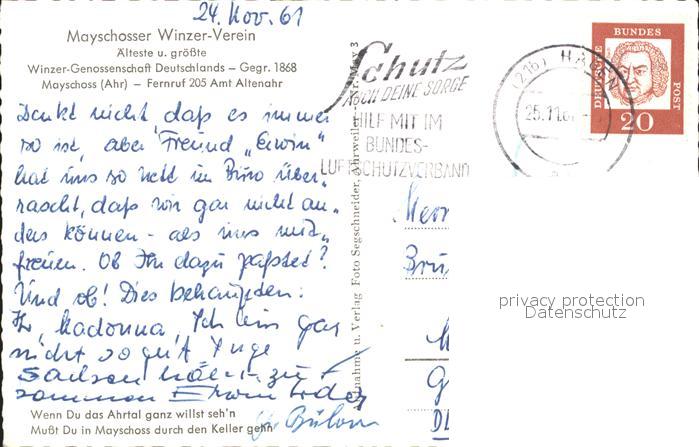 24. Nov. 61
Mayschosser Winzer-Verein
Älteste u. größte
Winzer-Genossenschaft Deutschlands – Gegr. 1868
Mayschoss (Ahr) – Fernruf 205 Amt Altenahr
Denkt nicht daß es immer
so ist, aber Freund „Erwin"
hat uns so nett im Büro über-
rascht, daß wir gar nicht an-
ders können - als uns mit-
freuen. Ob Ihr dazu paßtet?
Und ob! Dies behaupten:
Ihr, Madonna, Ich bin gar
nicht so gut
Erwin
Bülow
Wenn Du das Ahrtal ganz willst seh'n
Mußt Du in Mayschoss durch den Keller gehn
Aufnahme u. Verlag Foto Segschneider, Ahrweiler
May 3
Schutz
AUCH DEINE SORGE
HILF MIT IM
BUNDES-
LUFTSCHUTZVERBAND
(21b) HAGEN
25.11.61
DEUTSCHE
BUNDES
POST
20
Herr
privacy protection
Datenschutz